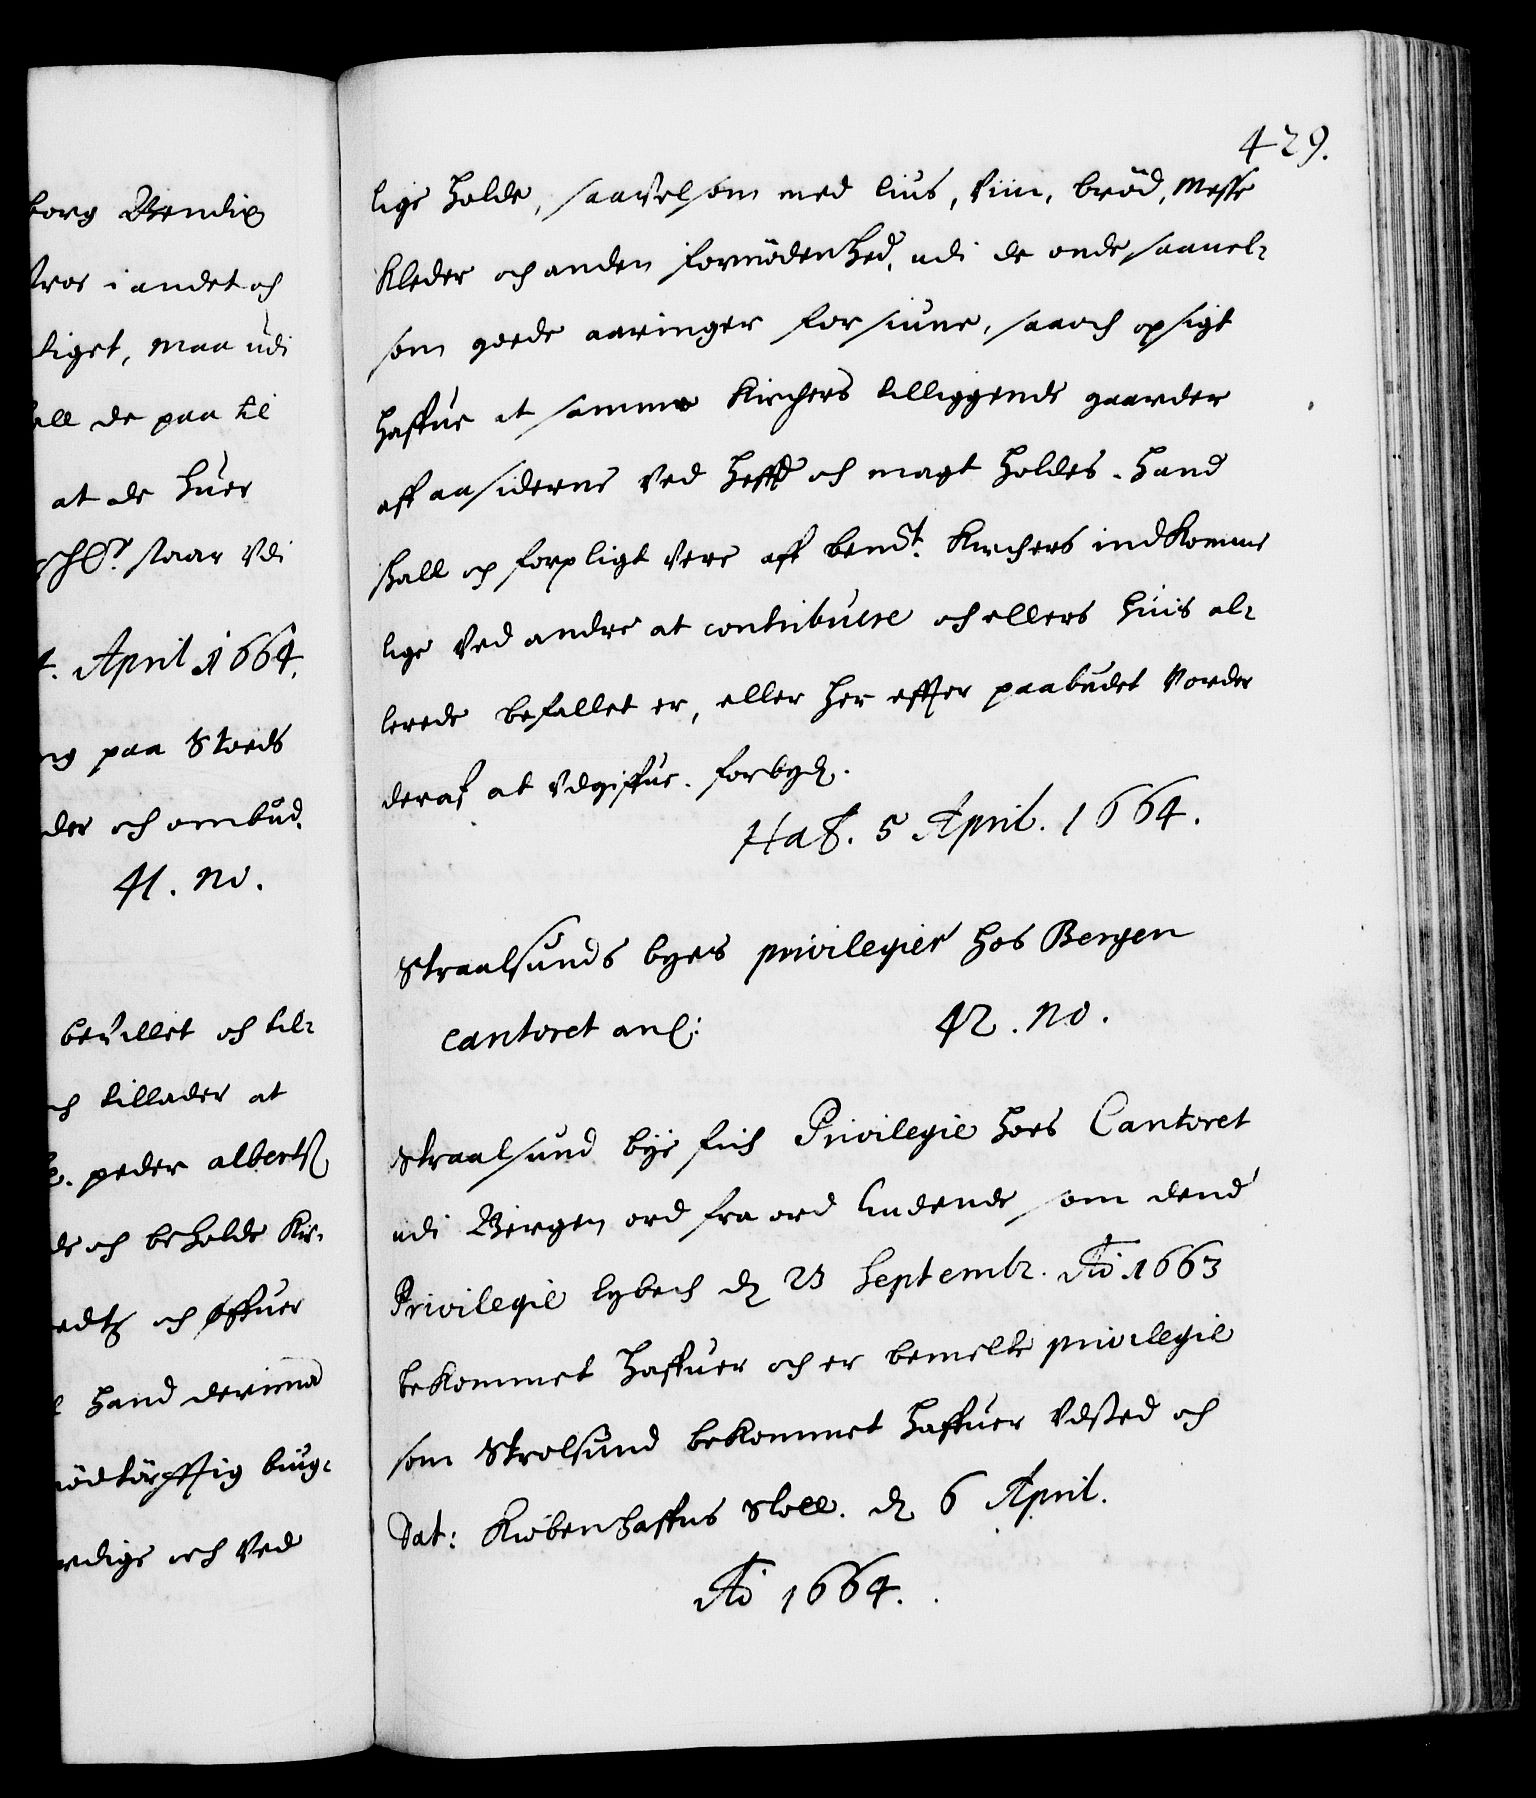 borg Bendix
tros i andet och
liget, maa udi
all de paa til
at de huer
staar Vdi
t. April 1664.
ng paa Stoeds
der och ombud.
41. no.
bevillet och til-
ch tillader at
peder albertß
de och beholde Kir-
edtz och øffuer
hand derimod
nødtørfftig biug-
rdige och Ved
429.
lige holde, saavelsom med lius, Viin, brød, Messe
Kleder och anden fornødenhed, udi de onde saauel-
som goede aaringer forsiune, saa och opsigt
haffue at samme Kirchers tilliggende gaarder
aff aasiderne Ved heffd och magt holdes. hand
skall och forpligt Vere aff bemt. Kirchers indKomme
lige Ved andre at contribuere och ellers huis al-
lerede befallet er, eller her effter paabudet Vorder
deraf at Vdgiffue. forbydℯ.
Haf. 5 April. 1664.
Straalsunds byes privilegier hos Bergen
cantoret anl:
42. no.
Straalsund bÿe fich Privilegie hoes Cantoret
udi Bergen ord fra ord liudende som dend
Privilegie lybech dℯ 23 Septembr. Ao 1663
beKommet haffuer och er bemelte privilegie
som Strolsund bekommet haffuer Vdsted och
Dat: Kiøbenhaffns Slott. dℯ 6 April.
Ao 1664.